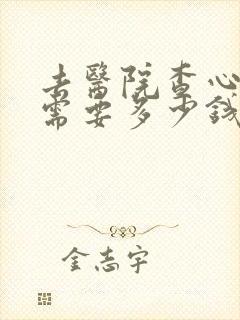 去醫院查心
需要多少錢
金志宇